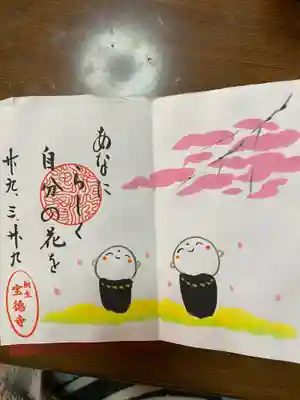 あなた
らしく
自分の花を
廿九、三、廿九
桐生
宝徳寺